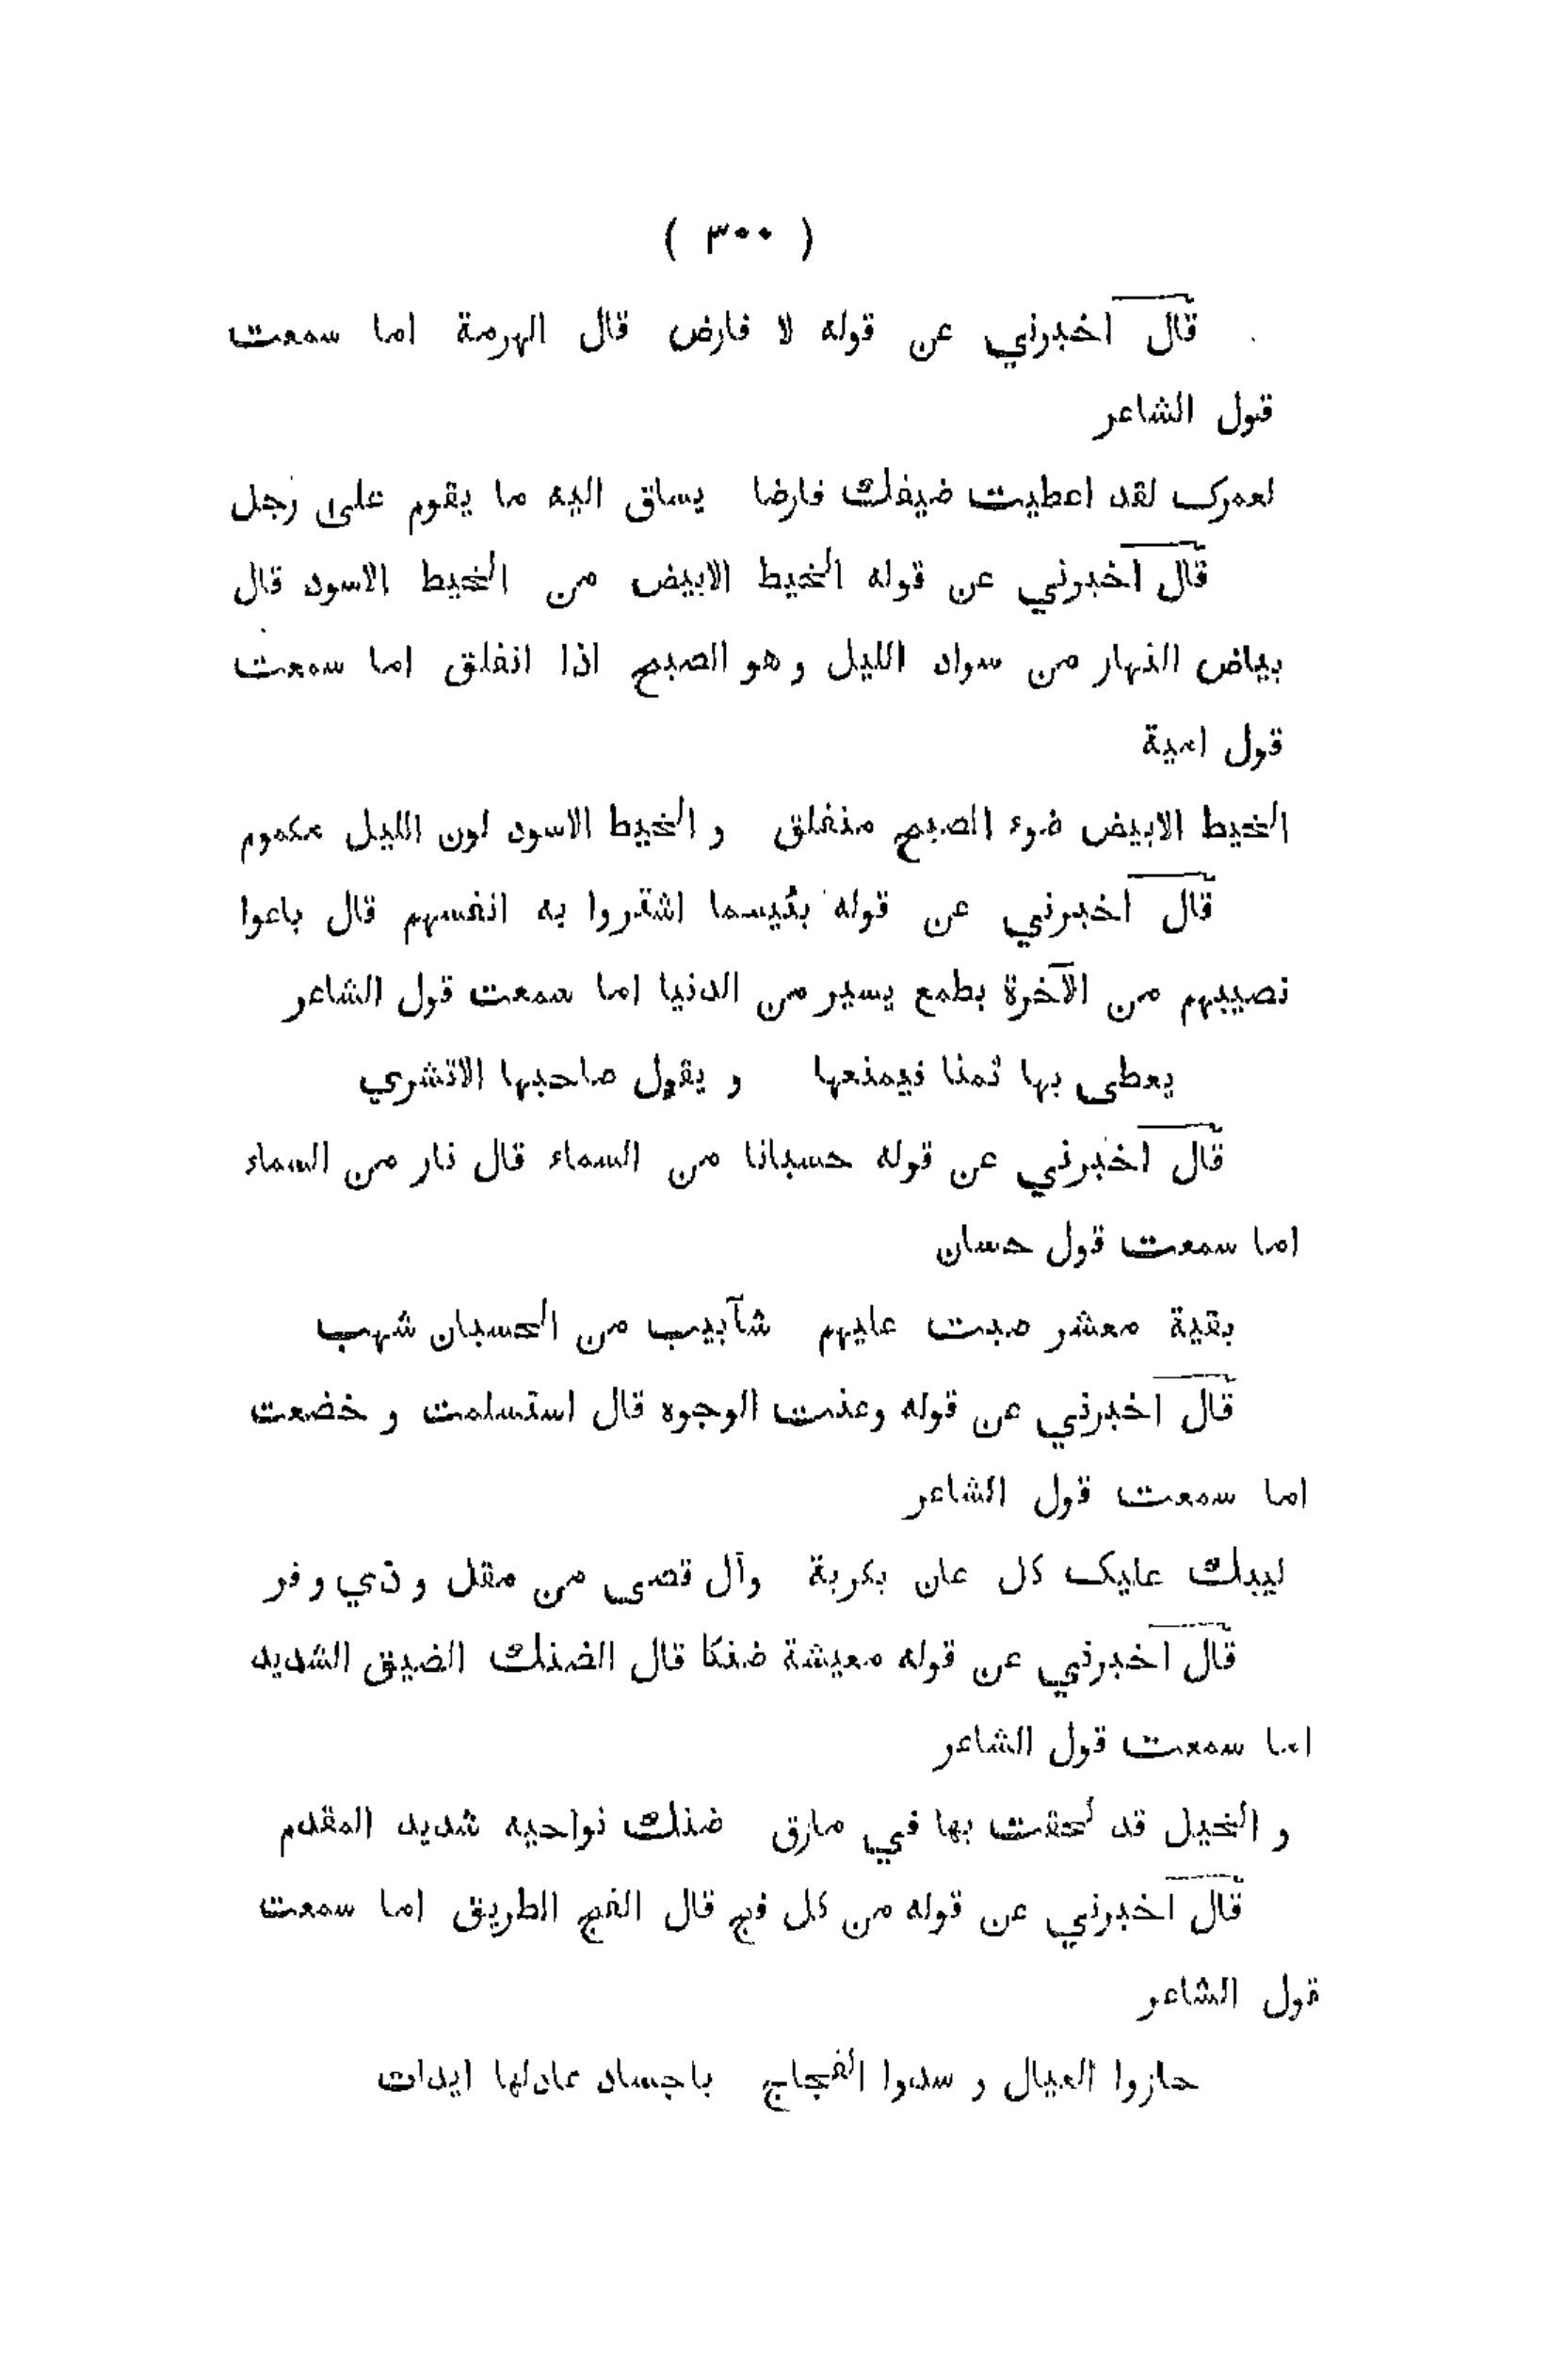 ( ٣٠٠ )
قال اخبرني عن قوله لا فارض قال الهرمة اما سمعت
قول الشاعر
لعمرك لقد اعطيت ضيفك فارضا يساق اليه ما يقوم على رجل
قال اخبرني عن قوله الخيط الابيض من الخيط الاسود قال
بياض النهار من سواد الليل و هو الصبح اذا انفلق اما سمعت
قول امية
الخيط الابيض ضوء الصبح منفلق و الخيط الاسود لون الليل مكموم
قال اخبرني عن قوله بئيسما اشتروا به انفسهم قال باعوا
نصيبهم من الآخرة بطمع يسير من الدنيا اما سمعت قول الشاعر
يعطى بها ثمنا فيمنعها و يقول صاحبها الاتشري
قال اخبرني عن قوله حسبانا من السماء قال نار من السماء
اما سمعت قول حسان
بقية معشر صبت عليهم شآبيب من الحسبان شهب
قال اخبرني عن قوله وعنت الوجوه قال استسلمت و خضعت
اما سمعت قول الشاعر
ليبك عليك كل عان بكربة وآل قصى من مقل و ذي و فر
قال اخبرني عن قوله معيشة ضنكا قال الضنك الضيق الشديد
اما سمعت قول الشاعر
و الخيل قد لحقت بها في مازق ضنك نواحيه شديد المقدم
قال اخبرني عن قوله من كل فج قال الفج الطريق اما سمعت
قول الشاعر
حازوا العيال و سدوا الفجاج باجساد عادلها ايدات